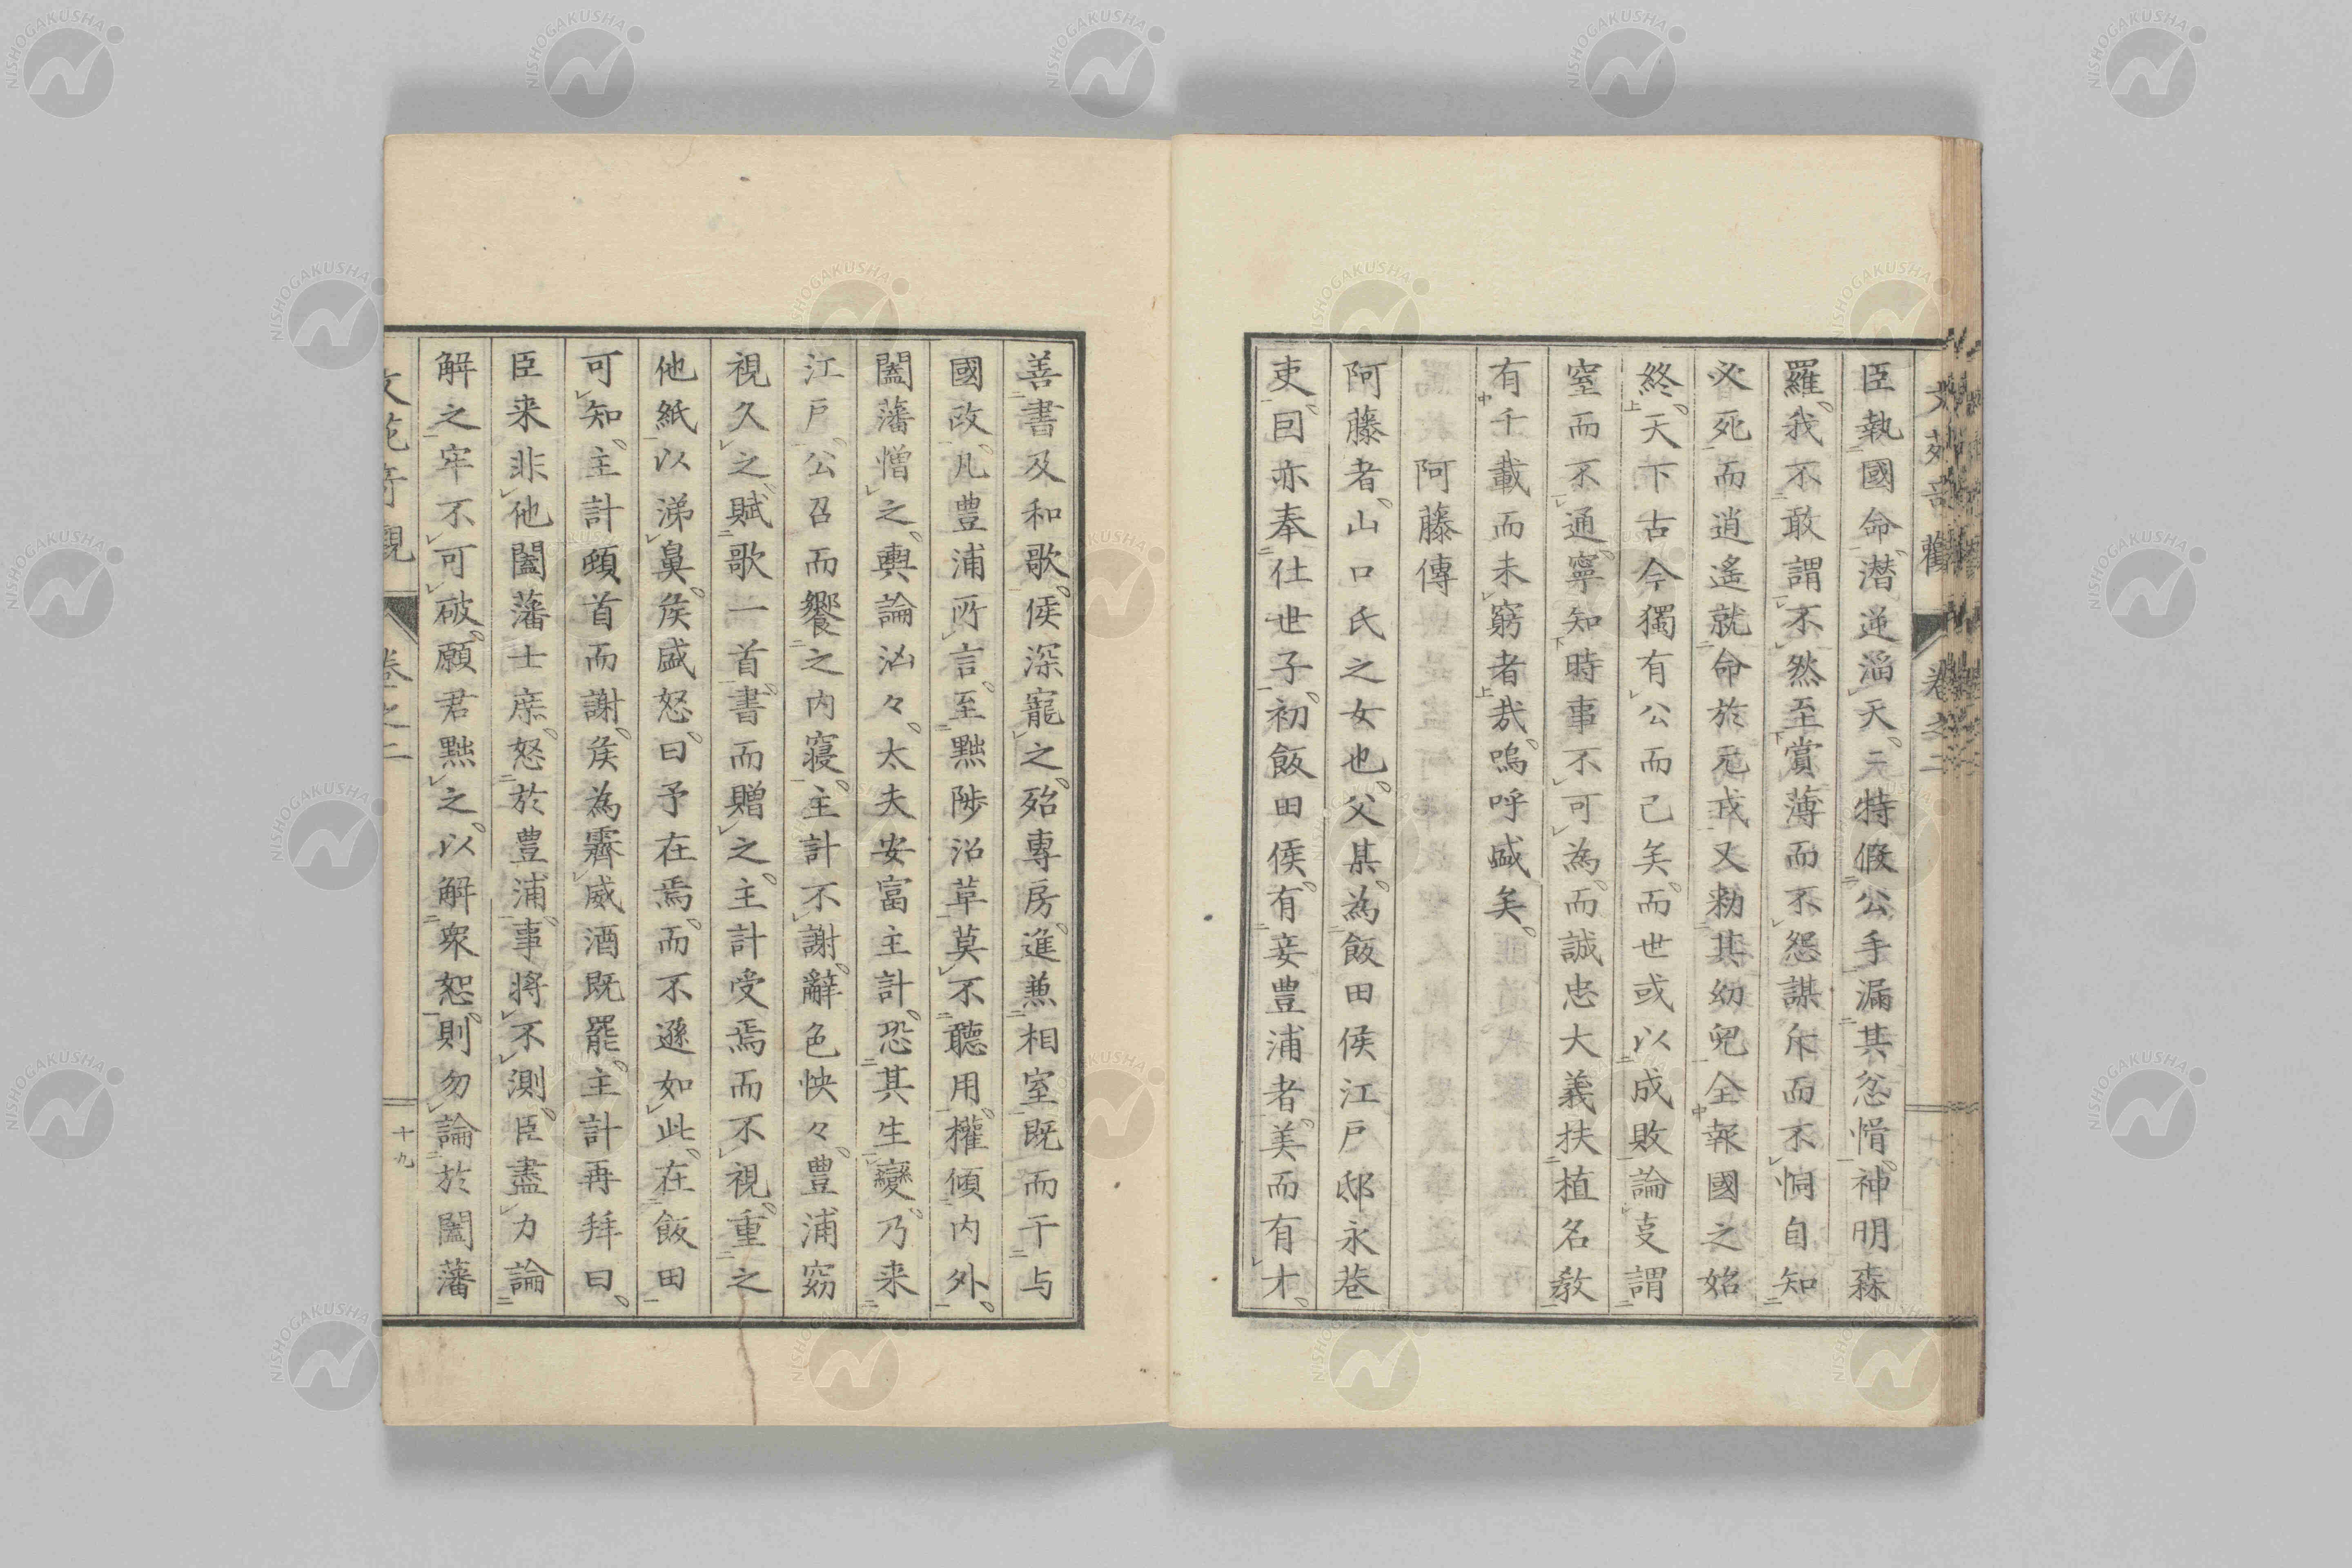 臣執國命潜逆滔天云特假公手漏其忿悁神明森
羅我不敢謂不然至賞薄而不怨謀斥而不恫自知
必死而逍遙就命於元戎又勑其幼兒全報國之始
終天下古今獨有公而已矣而世或以成敗論支謂
窒而不通寧知時事不可為而誠忠大義扶植名教
有千載而未窮者哉嗚呼盛矣
阿藤傳
阿藤者山口氏之女也父某為飯田侯江戸邸永巷
吏回亦奉仕世子初飯田侯有妾豊浦者美而有才
善書及和歌侯深寵之殆專房進兼相室既而干与
國改凡豊浦所言至黜陟沿革莫不聽用權傾内外
闔藩憎之輿論汹々太夫安富主計恐其生變乃来
江戸公召而饗之内寝主計不謝辭色怏々豊浦窈
視久之賦歌一首書而贈之主計受焉而不視重之
他紙以涕鼻矦盛怒曰予在焉而不遜如此在飯田
可知主計頓首而謝矦為霽威酒既罷主計再拜曰
臣来非他闔藩士庶怒於豊浦事将不測臣盡力論
解之牢不可破願君黜之以解衆恕則勿論於闔藩
文苑奇觀
卷之二
十九